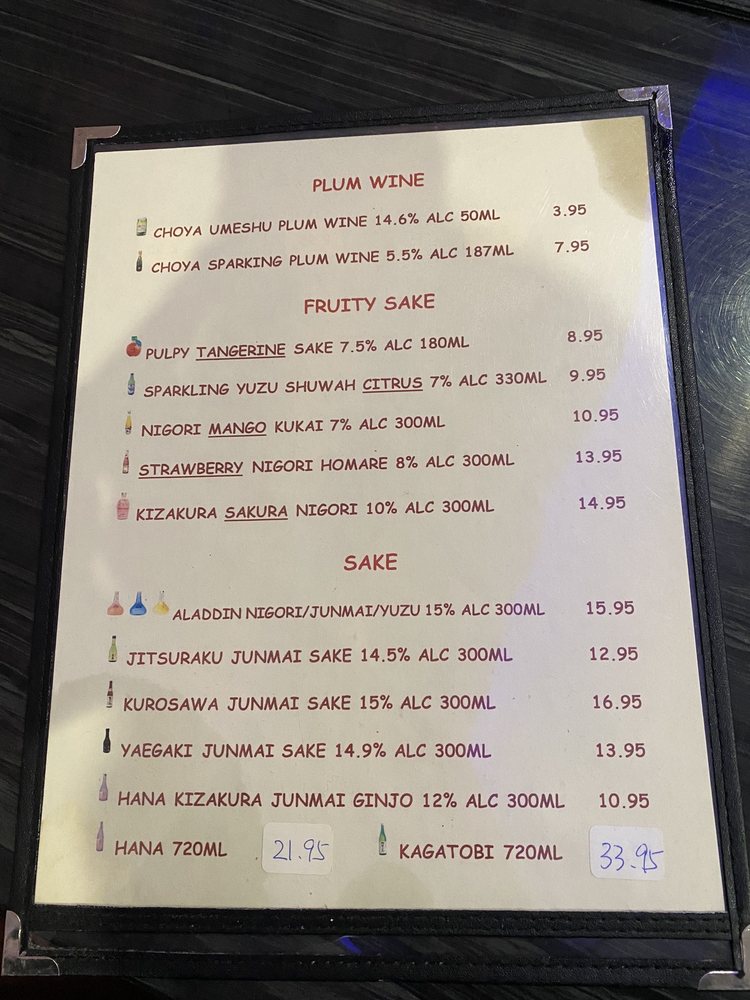 PLUM WINE
CHOYA UMESHU PLUM WINE 14.6% ALC 50ML 3.95
CHOYA SPARKING PLUM WINE 5.5% ALC 187ML 7.95
FRUITY SAKE
PULPY TANGERINE SAKE 7.5% ALC 180ML 8.95
SPARKLING YUZU SHUWAH CITRUS 7% ALC 330ML 9.95
NIGORI MANGO KUKAI 7% ALC 300ML 10.95
STRAWBERRY NIGORI HOMARE 8% ALC 300ML 13.95
KIZAKURA SAKURA NIGORI 10% ALC 300ML 14.95
SAKE
ALADDIN NIGORI/JUNMAI/YUZU 15% ALC 300ML 15.95
JITSURAKU JUNMAI SAKE 14.5% ALC 300ML 12.95
KUROSAWA JUNMAI SAKE 15% ALC 300ML 16.95
YAEGAKI JUNMAI SAKE 14.9% ALC 300ML 13.95
HANA KIZAKURA JUNMAI GINJO 12% ALC 300ML 10.95
HANA 720ML 21.95 KAGATOBI 720ML 33.95